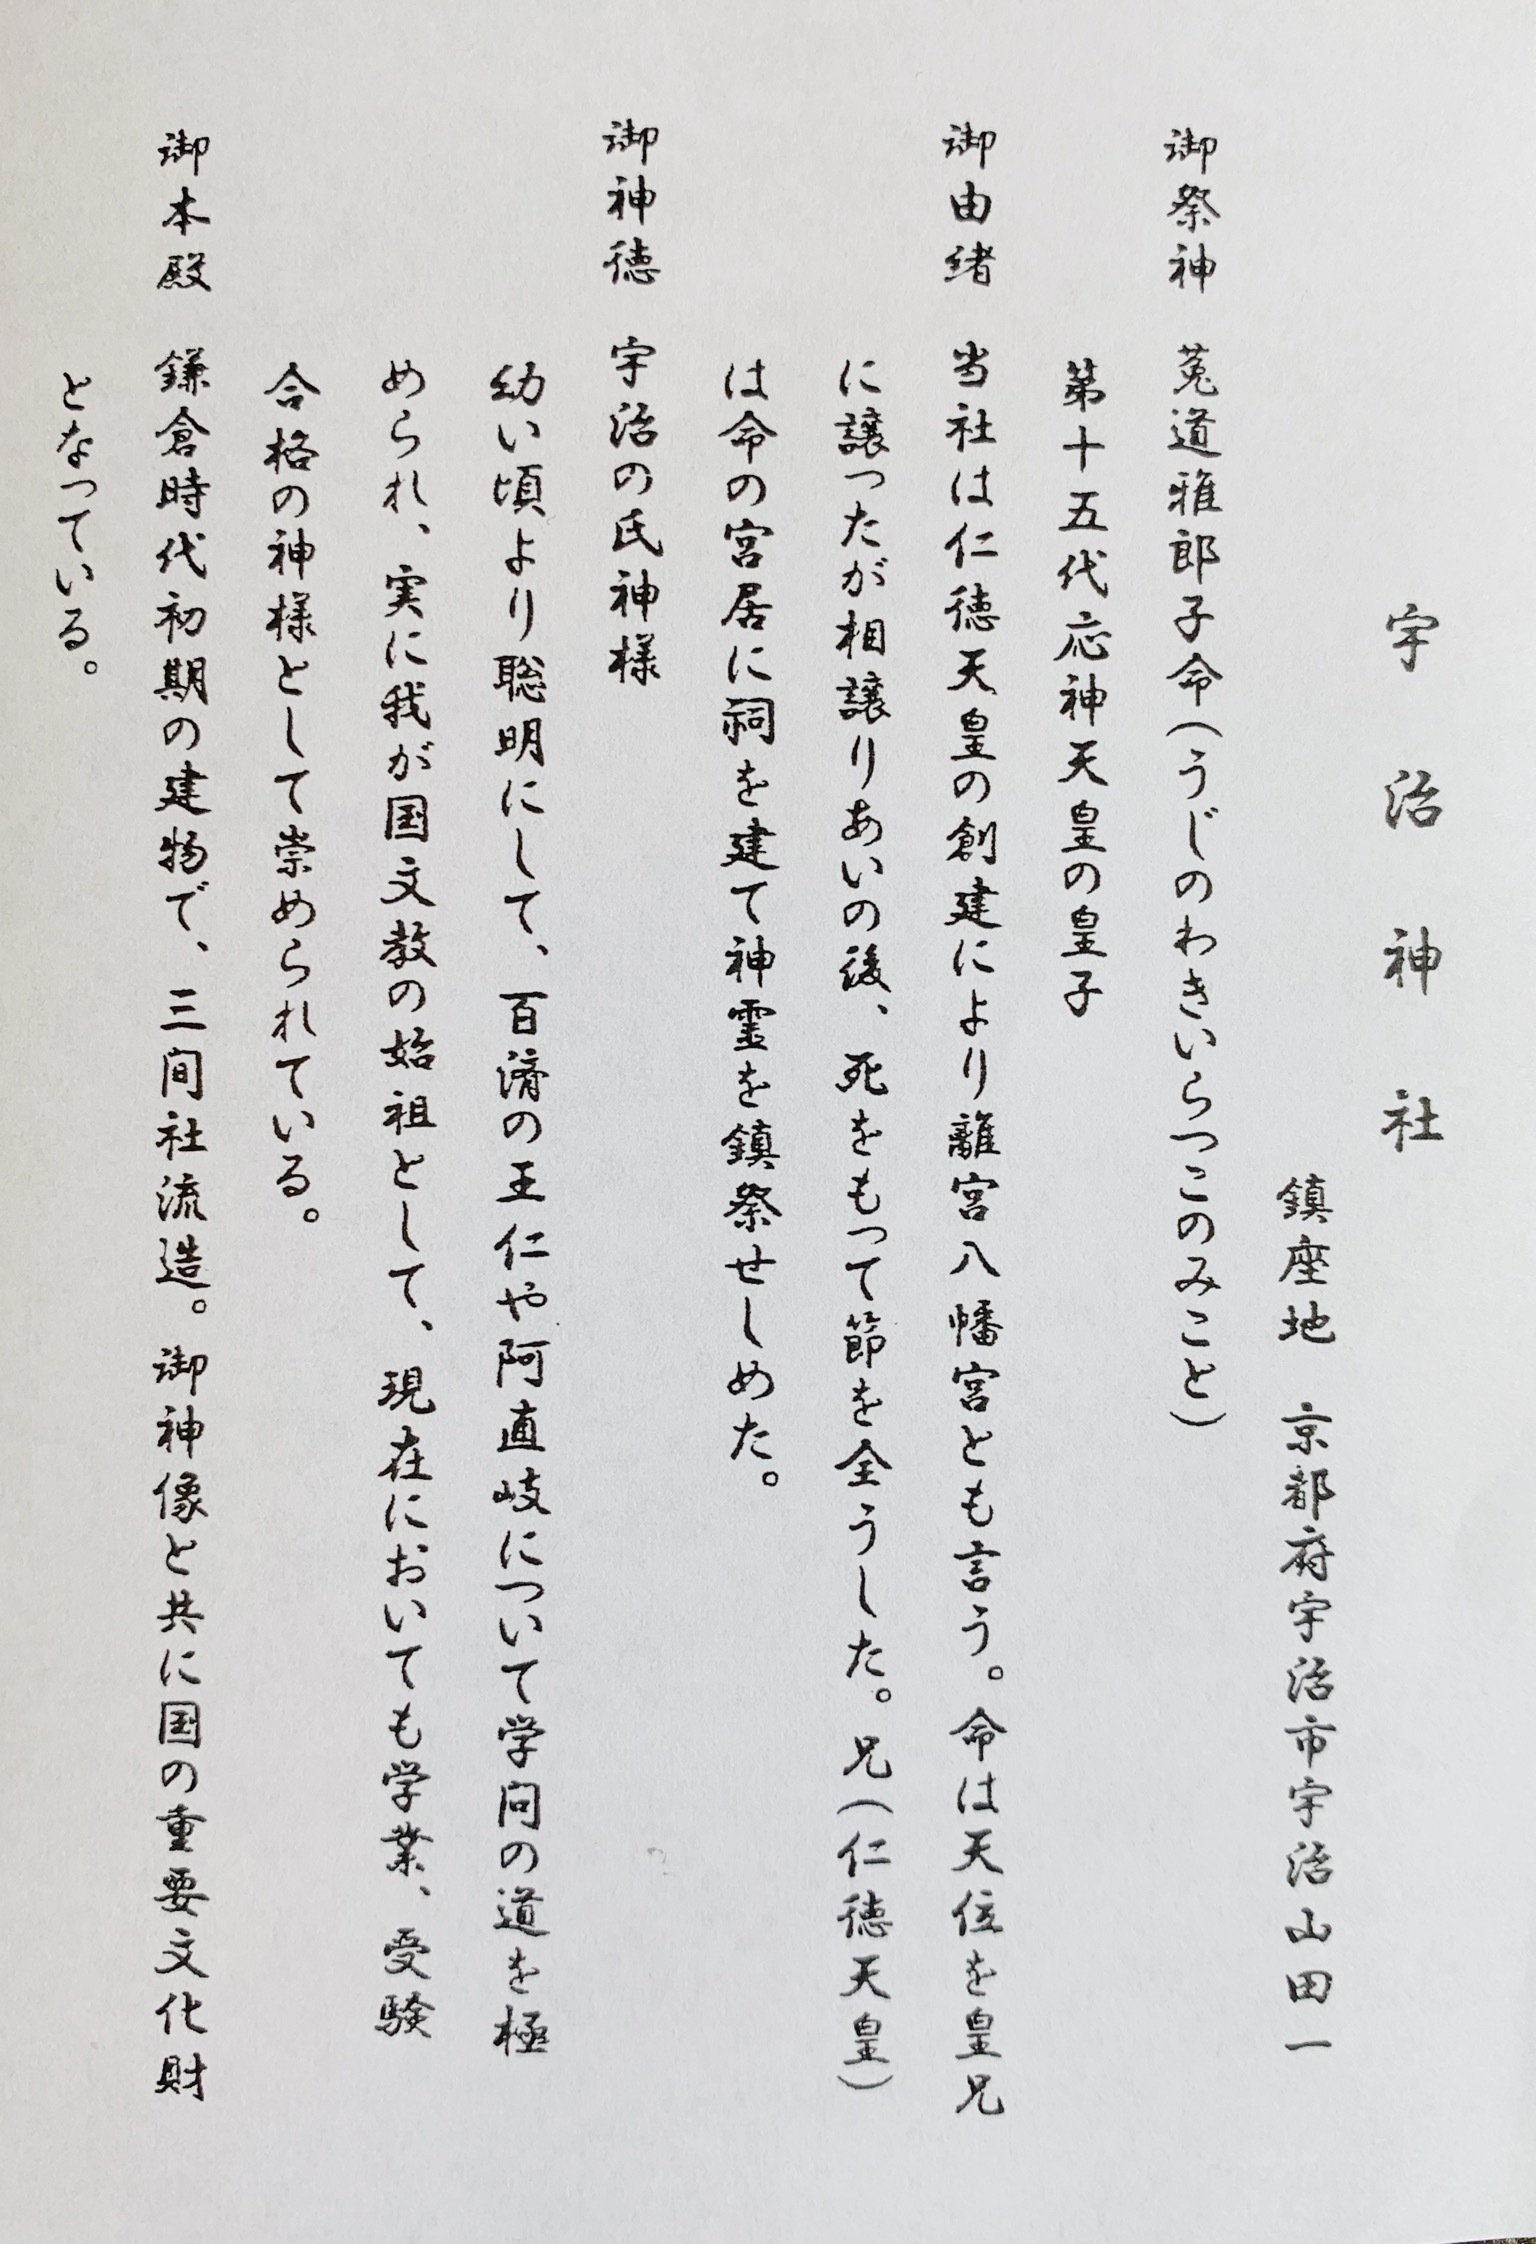 宇治神社
鎮座地 京都府宇治市宇治山田一
御祭神 菟道雅郎子命(うじのわきいらつこのみこと)
第十五代応神天皇の皇子
御由緒 当社は仁徳天皇の創建により離宮八幡宮とも言う。命は天位を皇兄
に譲ったが相譲りあいの後、死をもって節を全うした。兄(仁徳天皇)
は命の宮居に祠を建て神霊を鎮祭せしめた。
御神徳 宇治の氏神様
幼い頃より聡明にして、百済の王仁や阿直岐について学問の道を極
められ、実に我が国文教の始祖として、現在においても学業、受験
合格の神様として崇められている。
御本殿 鎌倉時代初期の建物で、三間社流造。御神像と共に国の重要文化財
となっている。